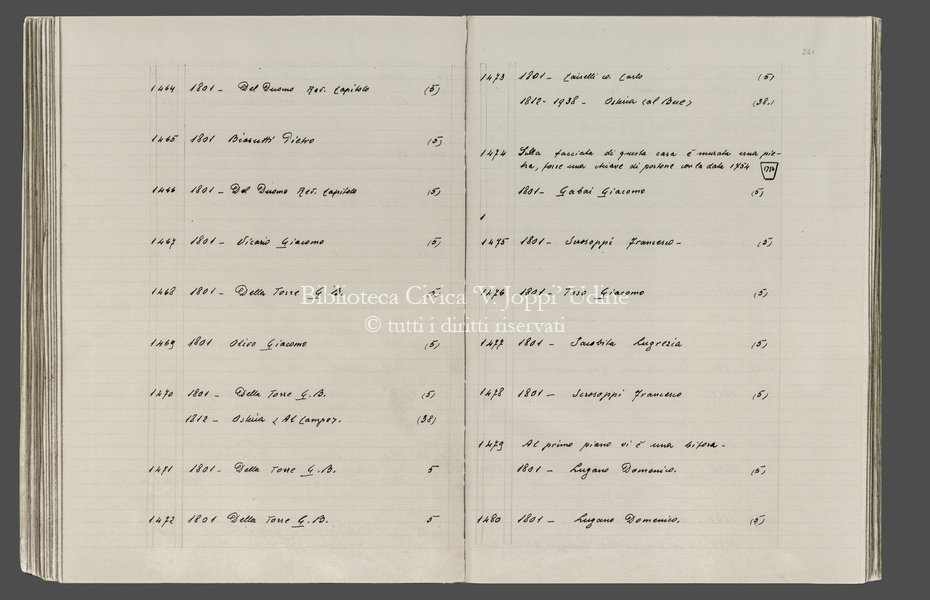 1464 1801 - Del Duomo Rev. Capitolo (5)
1465 1801 Biasutti Pietro (5)
1466 1801 - Del Duomo Rev. Capitolo (5)
1467 1801 - Vicario Giacomo (5)
1468 1801 - Della Torre G. B. (5)
1469 1801 Olivo Giacomo (5)
1470 1801 - Della Torre G. B. (5)
1812 - Osteria < Al Campo >. (38)
1471 1801 - Della Torre G. B. 5
1472 1801 Della Torre G. B. 5
1473 1801 - Caiselli co. Carlo (5)
1812 - 1938 - Osteria < al Bue > (38.)
1474 Sulla facciata di questa casa è murata una pie-
tra, forse una chiave di portone con la data 1754 1754
1801 - Gabai Giacomo (5)
1
1475 1801 - Scrosoppi Francesco - (5)
1476 1801 - Toso Giacomo (5)
1477 1801 - Jacobita Lugrezia (5)
1478 1801 - Scrosoppi Francesco (5)
1479 Al primo piano vi è una bifora -
1801 - Lugano Domenico. (5)
1480 1801 - Lugano Domenico. (5)
Biblioteca Civica 'V. Joppi' Udine
© tutti i diritti riservati